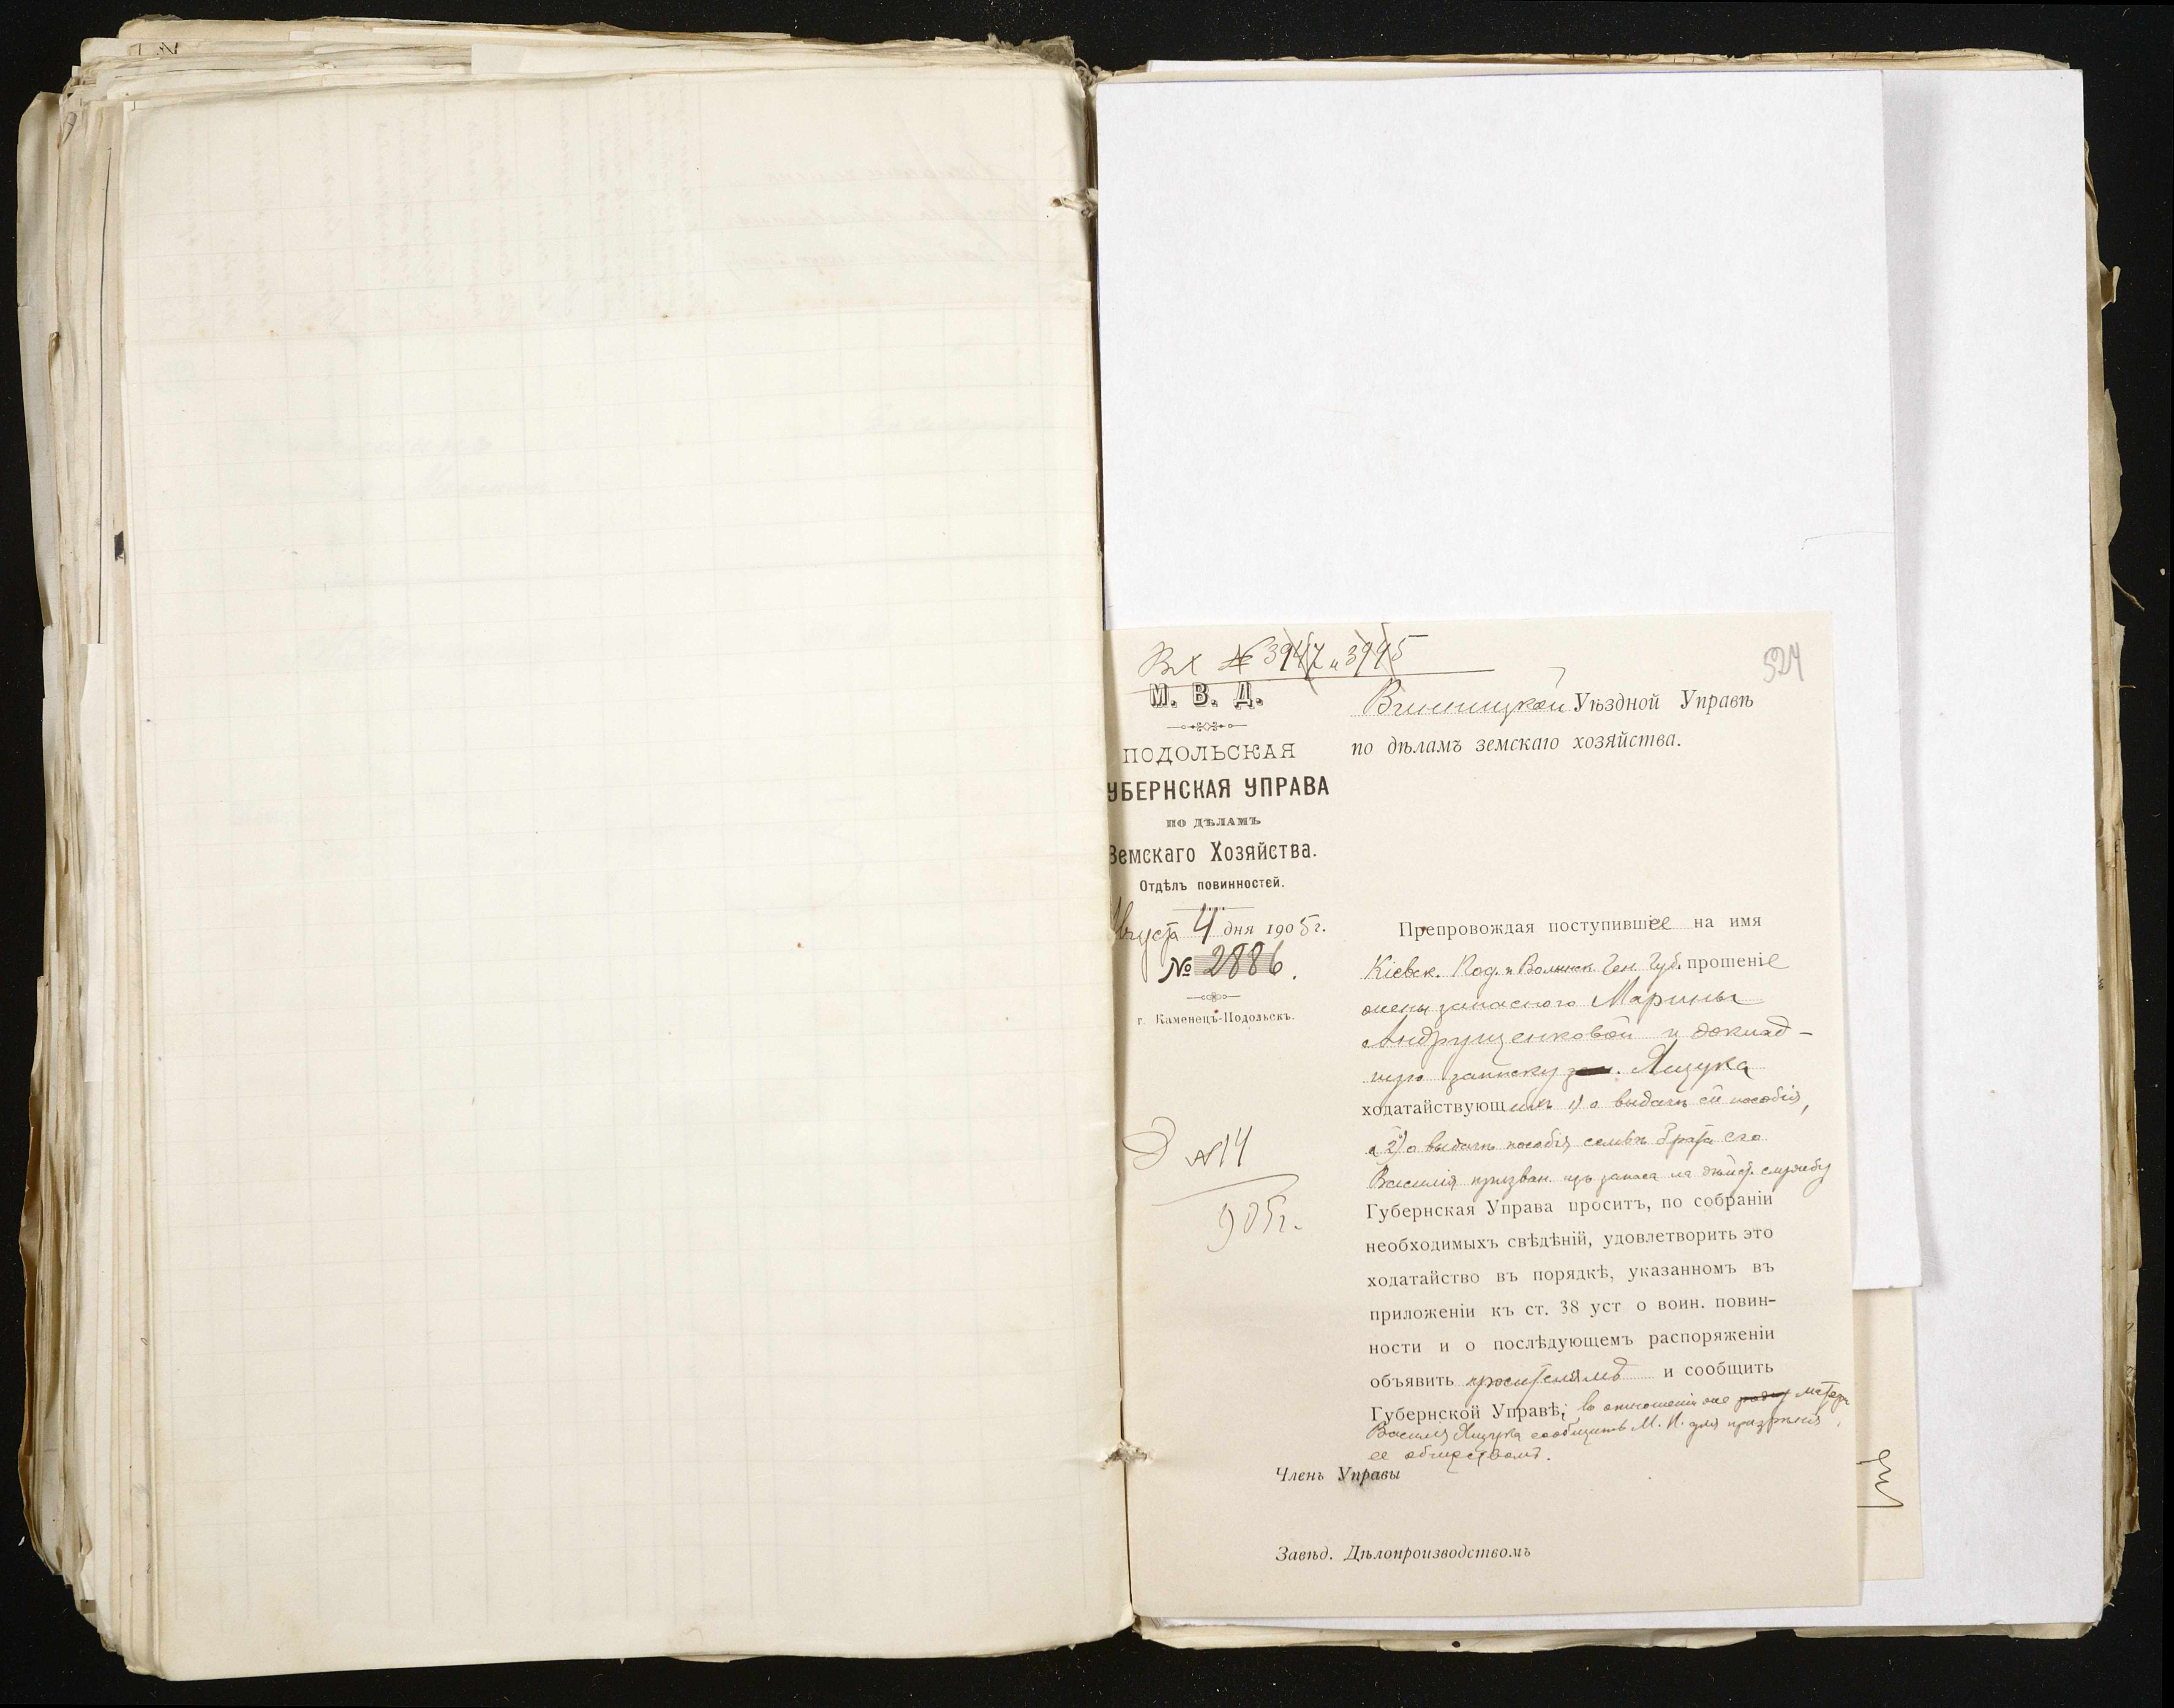 Вх № 3947 и 3995
524
М. В. Д.
ПОДОЛЬСКАЯ
УБЕРНСКАЯ УПРАВА
ПО ДѢЛАМЪ
Земскаго Хозяйства.
Отдѣлъ повинностей.
Августа 4 дня 1905 г.
№ 2886.
г. Каменецъ-Подольскъ.
Д №14
905г.
Винницкой Уѣздной Управѣ
по дѣламъ земскаго хозяйства.
Препровождая поступившіе на имя
Кіевск. Под. и Волынск. Ген. Губ. прошеніе
жены запасного Марины
Андрущенковой и доклад-
ную записку Ящука
ходатайствующихъ 1) о выдачѣ ей пособія,
и 2) о выдачѣ пособія семьѣ брата его
Василія призван. изъ запаса на дѣйст. службу
Губернская Управа проситъ, по собраніи
необходимыхъ свѣдѣній, удовлетворить это
ходатайство въ порядкѣ, указанномъ въ
приложеніи къ ст. 38 уст о воин. повин-
ности и о послѣдующемъ распоряженіи
объявить просителямъ и сообщить
Губернской Управѣ; въ отношеніи же матери
Василія Ящука сообщить М. П. для призрѣнія
ее обществомъ.
Членъ Управы
Завѣд. Дѣлопроизводствомъ